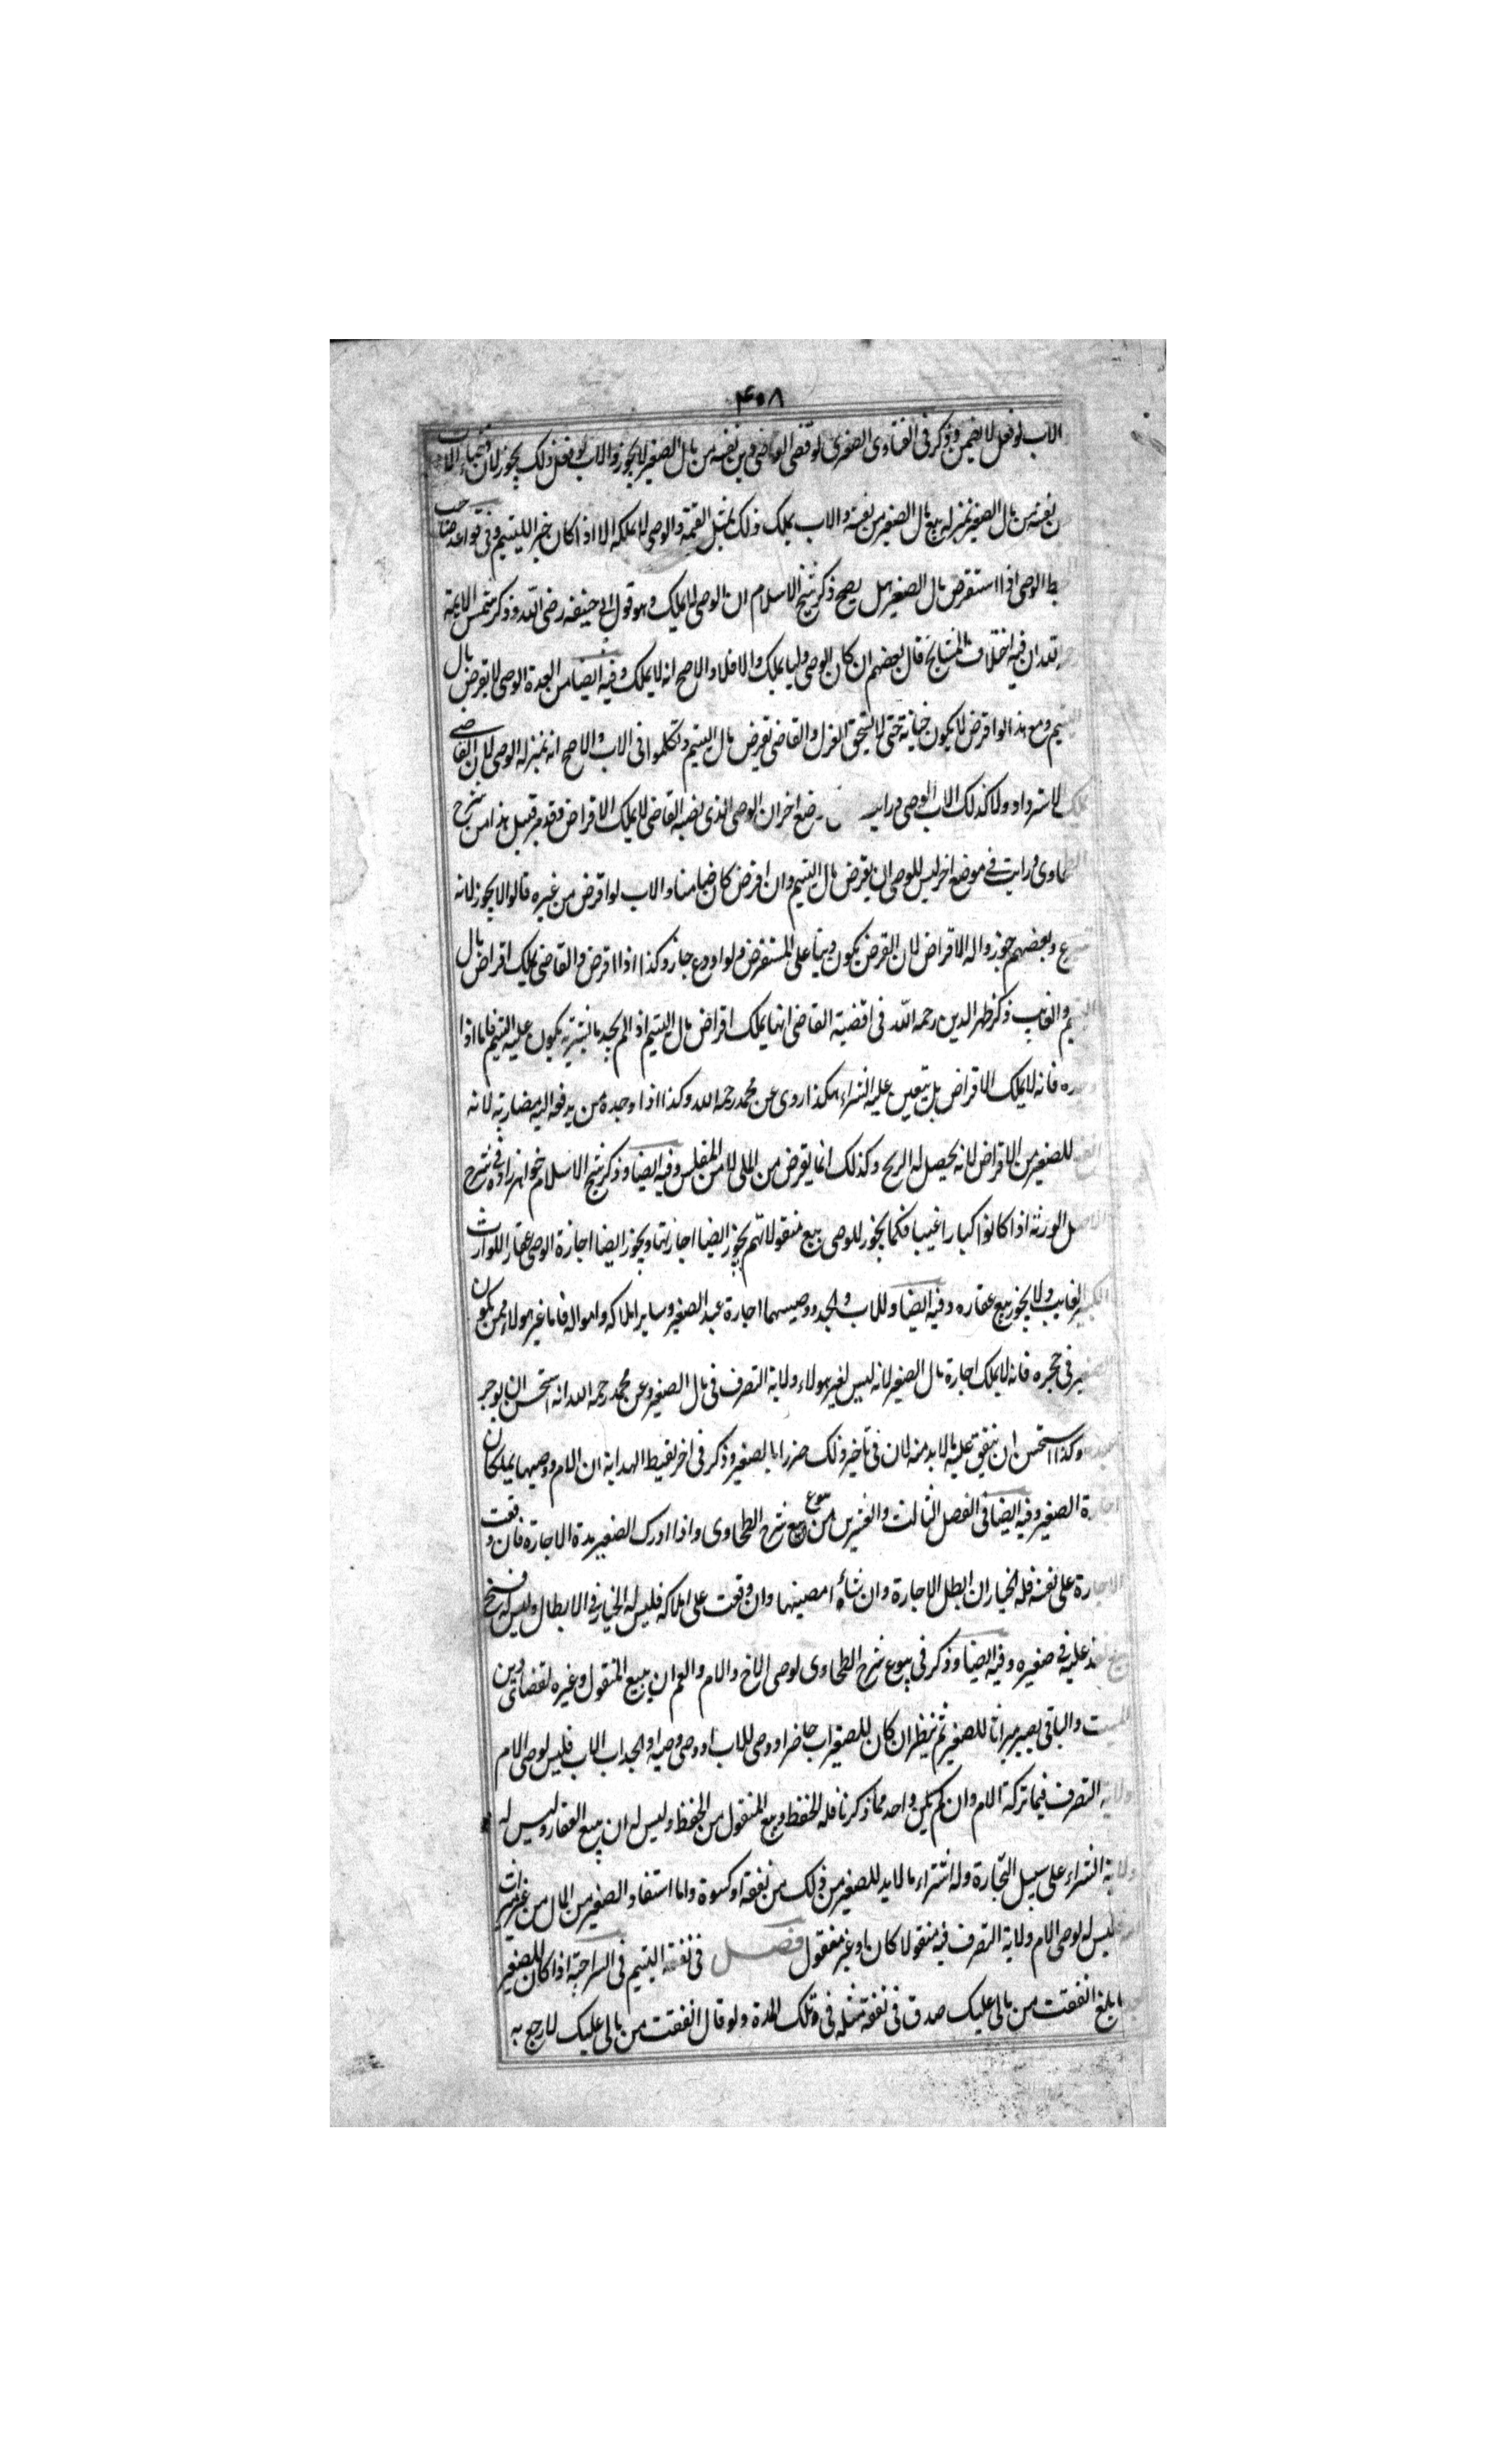 ۴۰۸
الاب لو فعل لا يضمن وذكر في الفتاوى الصغرى لو قضى الوصى دين نفسه من مال الصغير لا يجوز والاب لو فعل ذلك يجوز لان قضاء الا
ن نفسه من مال الصغير بمنزله بيع مال الصغير من نفسه والاب يملك ذلك بمثل القيمة والوصى لا يملكه الا اذا كان خيرا لليتيم وفى قواعد صاحب
ط الوصى اذا استقرض مال الصغير هل يصح ذكر شيخ الاسلام ان الوصى لا يملك وهو قول ابى حنيفه رضى الله وذكر شمس الايمة
الله ان فيه اختلاف المشايخ قال بعضهم ان كان الوصى وليا يملك والا فلا والاصح انه لا يملك وفيه ايضا من العدة الوصى لا يقرض مال
اليتيم ومع هذا لو اقرض لا يكون خيانة حتى لا يستحق العزل والقاضى يقرض مال اليتيم وتكلموا فى الاب والاصح انه بمنزله الوصى لان القاضى
يملك لاسترداد ولا كذلك الاب الوصى ورايت ضع اخر ان الوصى الذى نصبه القاضى لا يملك الاقراض فقد مر قبيل هذا من شرح
الطحاوى ورايت فى موضع اخر ليس للوصى ان يقرض مال اليتيم وان اقرض كان ضامنا والاب لو اقرض من غيره قالوا لا يجوز لانه
ع وبعضهم جوزوا له الاقراض لان القرض يكون دينا على المستقرض ولو اودع جاز وكذا اذا اقرض والقاضى يملك اقراض مال
اليتيم والغايب ذكر ظهير الدين رحمه الله فى اقضية القاضى انما يملك اقراض مال اليتيم اذا لم يجد ما يشتريه يكون عليه اليتيم فاما اذا
وجده فانه لا يملك الاقراض بل يتعين عليه الشراء هكذا روى عن محمد رحمه الله وكذا اذا وجدة من يدفعه اليه مضاربة لانه
انفع للصغير من الاقراض لانه يحصل له الربح وكذلك انما يقرض من الملى لا من المفلس وفيه ايضا وذكر شيخ الاسلام خواهرزاده فى شرح
الاصل الورثة اذا كانوا كبارا غيبا فكما يجوز للوصى بيع منقولاتهم يجوز ايضا اجارتها ويجوز ايضا اجارة الوصى عقار اللوارث
الكبير الغايب ولا يجوز بيع عقاره وفيه ايضا وللاب والجد ووصيهما اجارة عبد الصغير وساير املاكه وامواله فاما غير هولاء ممن يكون
الصغير فى حجره فانه لا يملك اجارة مال الصغير لانه ليس لغير هولاء ولاية التصرف فى مال الصغير وعن محمد رحمه الله انه استحسن ان يوجر
عبده وكذا استحسن ان ينفق عليه مالا بد منه لان فى تاخير ذلك ضررا بالصغير وذكر فى اخر لقيط الهداية ان الام ووصيها يملكان
اجارة الصغير وفيه ايضا فى الفصل الثالث والعشرين من بيوع شرح الطحاوى واذا ادرك الصغير مدة الاجارة فان وقعت
الاجارة على نفسه فله الخيار ان ابطل الاجارة وان شاء امضيها وان وقعت على املاكه فليس له الخيار فى الابطال وليس له فسخ
نفذ عليه فى صغيره وفيه ايضا وذكر فى بيوع شرح الطحاوى لوصى الاخ والام والعم ان يبيع المنقول وغيره لقضاى دين
الميت والباقى يصير ميراثا للصغير ثم ينظر ان كان للصغير اب حاضر او وصى للاب او وصى وصيه او الجد اب الاب فليس لوصى الام
ولاية التصرف فيما تركه الام وان لم يكن واحد مما ذكرنا فله الحفظ وبيع المنقول من الحفظ وليس له ان يبيع العقار وليس له
ولاية الشراء على سبيل التجارة وله اشتراء مالا بد للصغير من ذلك من نفقة او كسوة واما استفاد الصغير من المال من غير ميراث
فليس له لوصى الام ولاية التصرف فيه منقولا كان او غير منقول فصل فى نفقة اليتيم فى السراجية اذا كان للصغير
ا بلغ انفقت من مالى عليك صدق فى نفقة مثله فى تلك المدة ولو قال انفقت من مالى عليك لارجع به